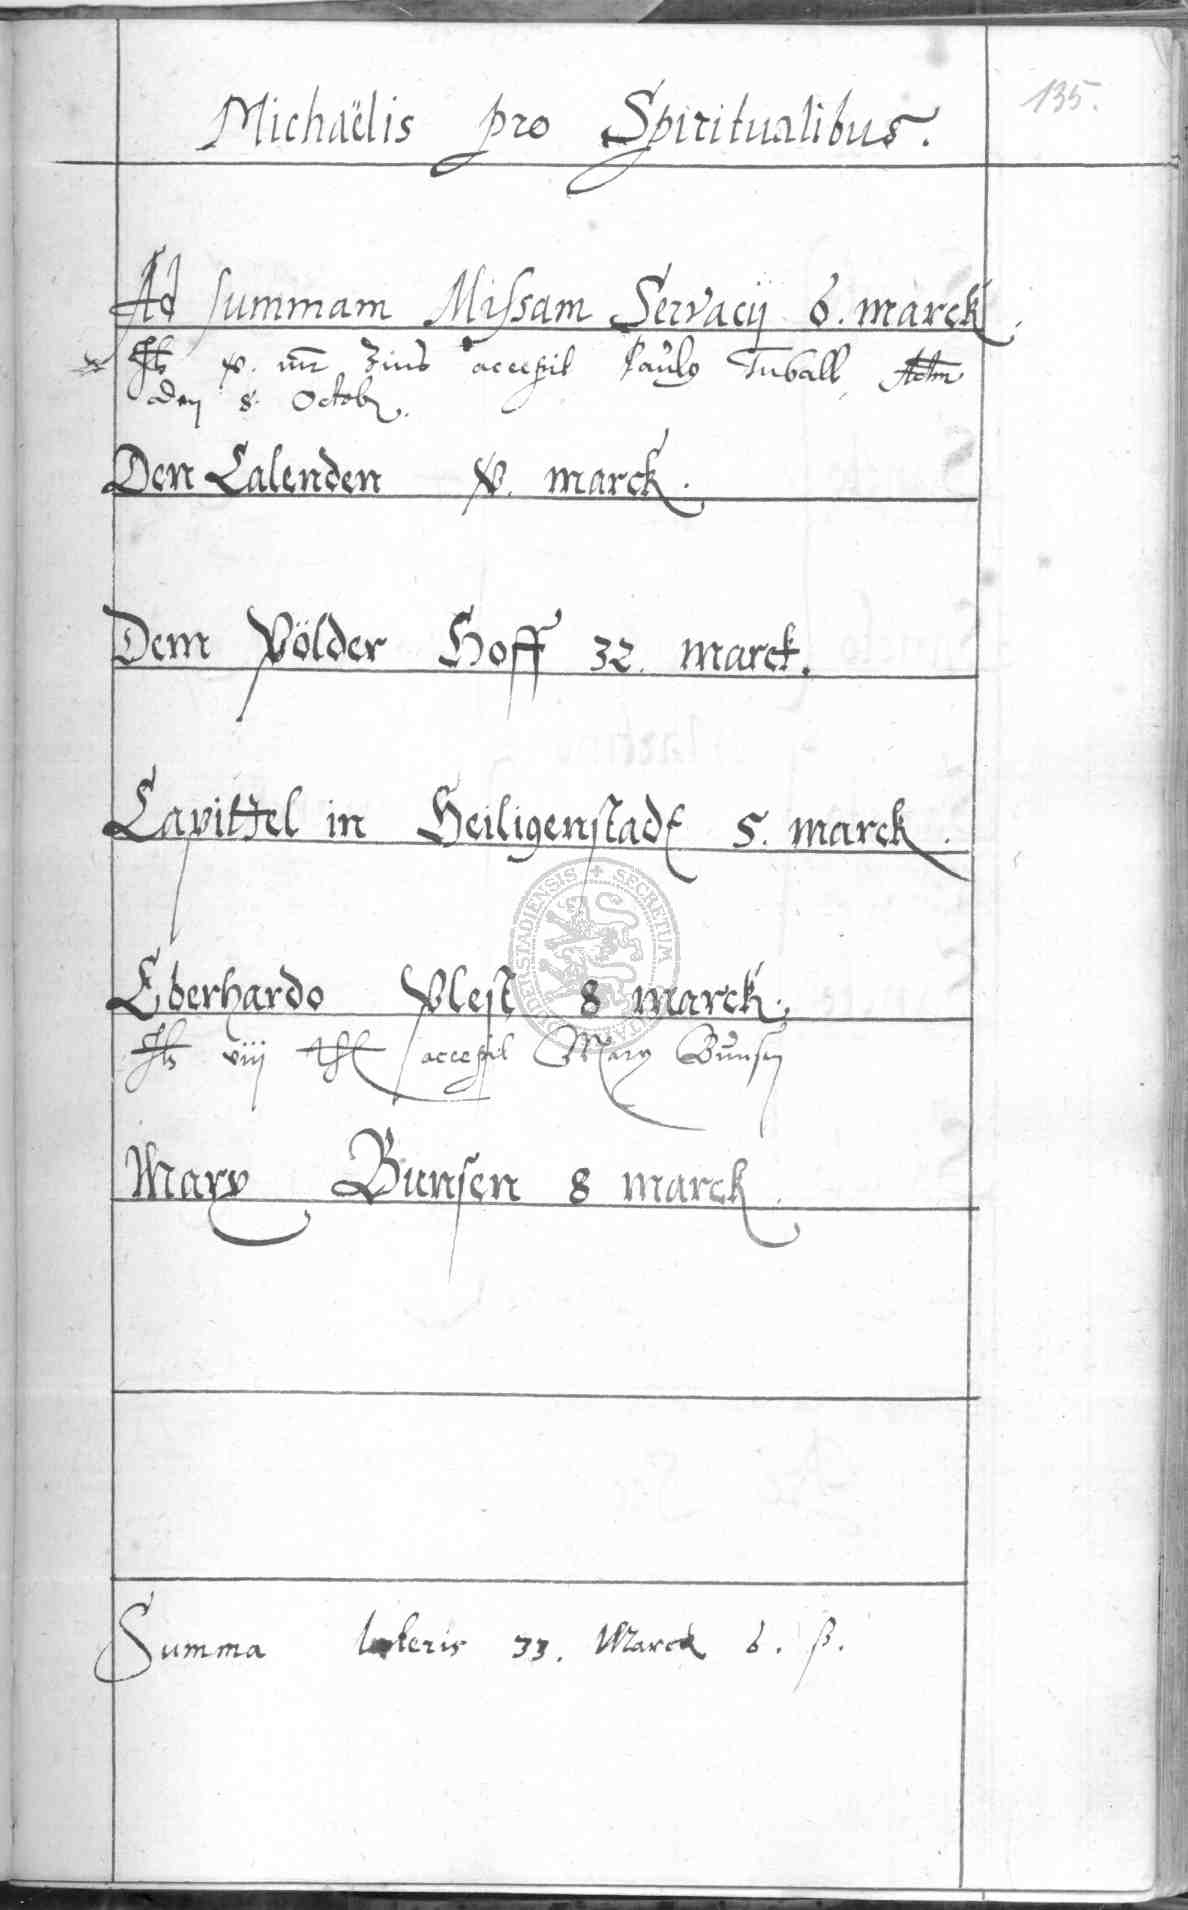 135.
Michaëlis pro Spiritualibus.
Ad summam Missam Servacij 6. marck
v. zins accepit Paulg Tuball, Actm
den 8. Octob.
Den Calenden v. marck.
Dem Völder Hoff 32. marck.
Capittel in Heiligenstadt 5. marck.
DUDERSTADIENSIS + SECRETUM
Eberhardo Vlest 8 marck.
viij accepit Marx Bunsen
Marx Bunsen 8 marck.
Summa lateris 33. Marck 6. ß.